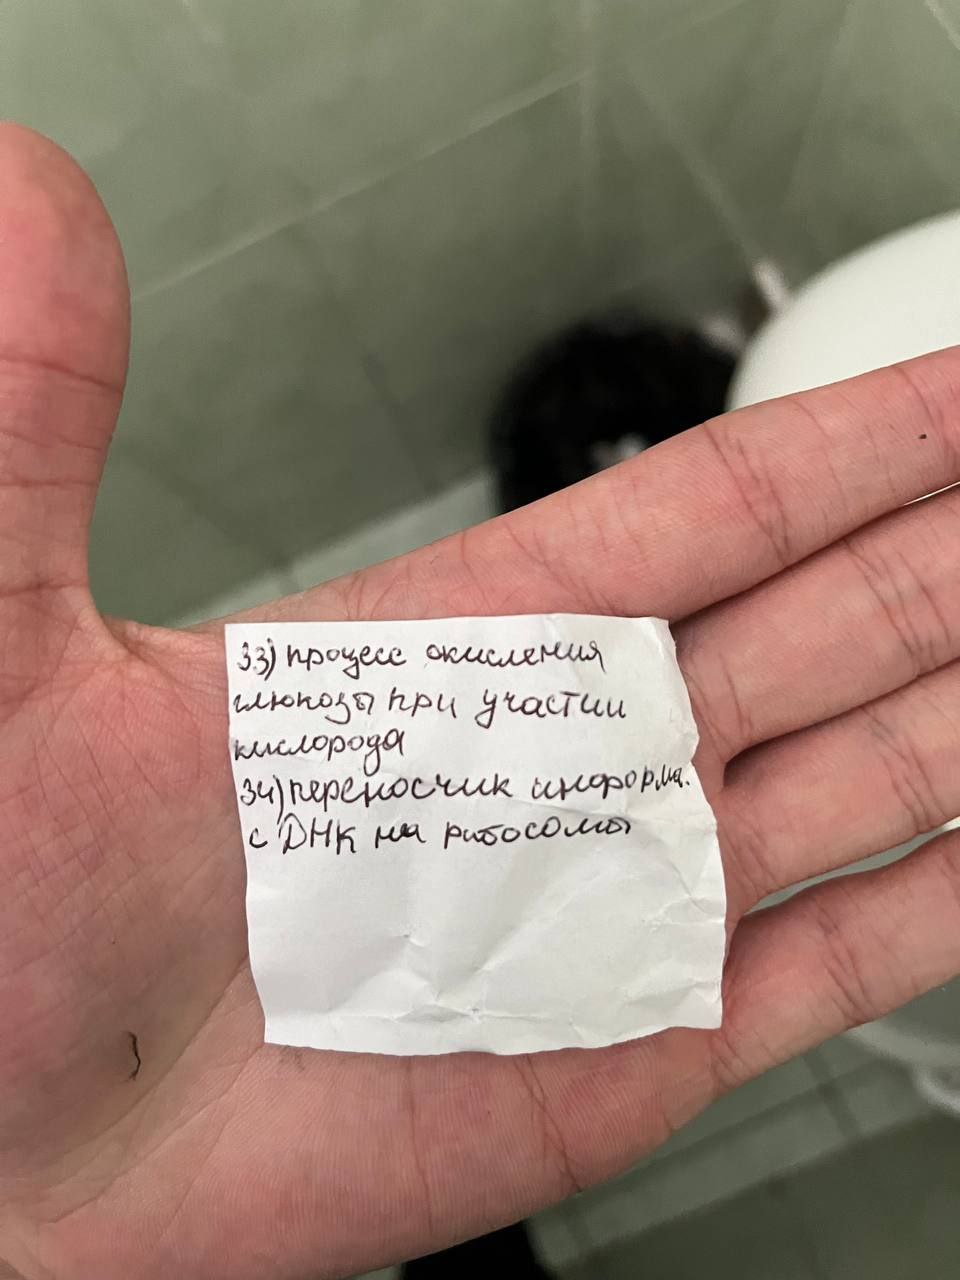 33) процесс окисления
глюкозы при участии
кислорода
34) переносчик информа.
с ДНК на рибосомы